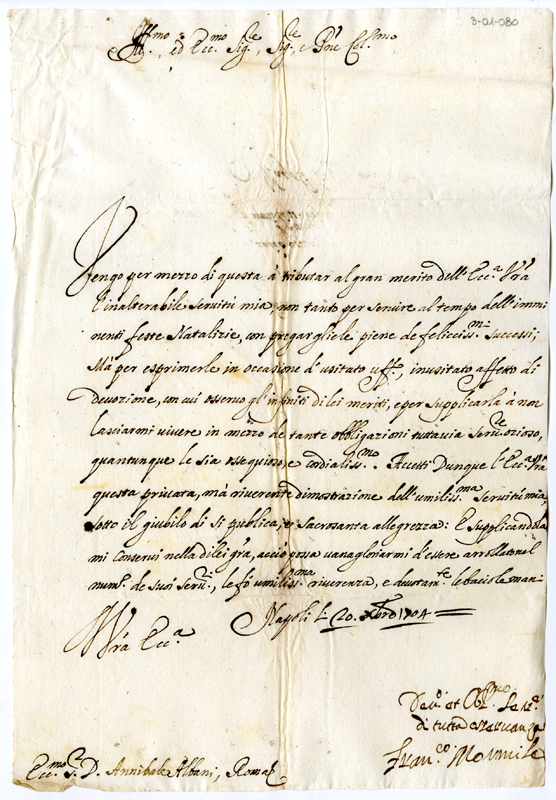 3-01-080
Ill.mo, ed Ecc.mo Sig.re, Sig.re, e Pne Col.mo
Vengo per mezzo di questa à tributar al gran merito dell' Ecc.a Vrã
l'inalterabile servitù mia, non tanto per servire al tempo dell' immi
nenti feste Natalizie, con pregargliele piene de feliciss.mi successi;
Mà per esprimerle in occasione d' usitato uff.o, inusitato affetto di
devozione, con cui osservo gl' infiniti di lei meriti, e per supplicarla à non
lasciarmi vivere in mezzo de tante obbligazioni tuttavia serv.re ozioso,
quantunque le sia ossequioso, e cordialiss.mo. Accetti Dunque l' Ecc.a Vrã
questa privata, mà riverente dimostrazione dell' umiliss.ma servitù mia,
sotto il giubilo di sì publica, e sacrosanta allegrezza: E supplicandola
mi conservi nella di lei grã, acciò possa vanagloriarmi d' essere arrollato nel
num.o de suoi serv.ri, le fò umiliss.ma riverenza, e devotam.te le bacio le man-
Vrã Ecc.a
Napoli li 20. Xbro 1704
Dev.o et Obl.mo Ser.re
di tutta osservanza
Fran.co
Ecc.mo S.r D. Annibale Albani, Roma